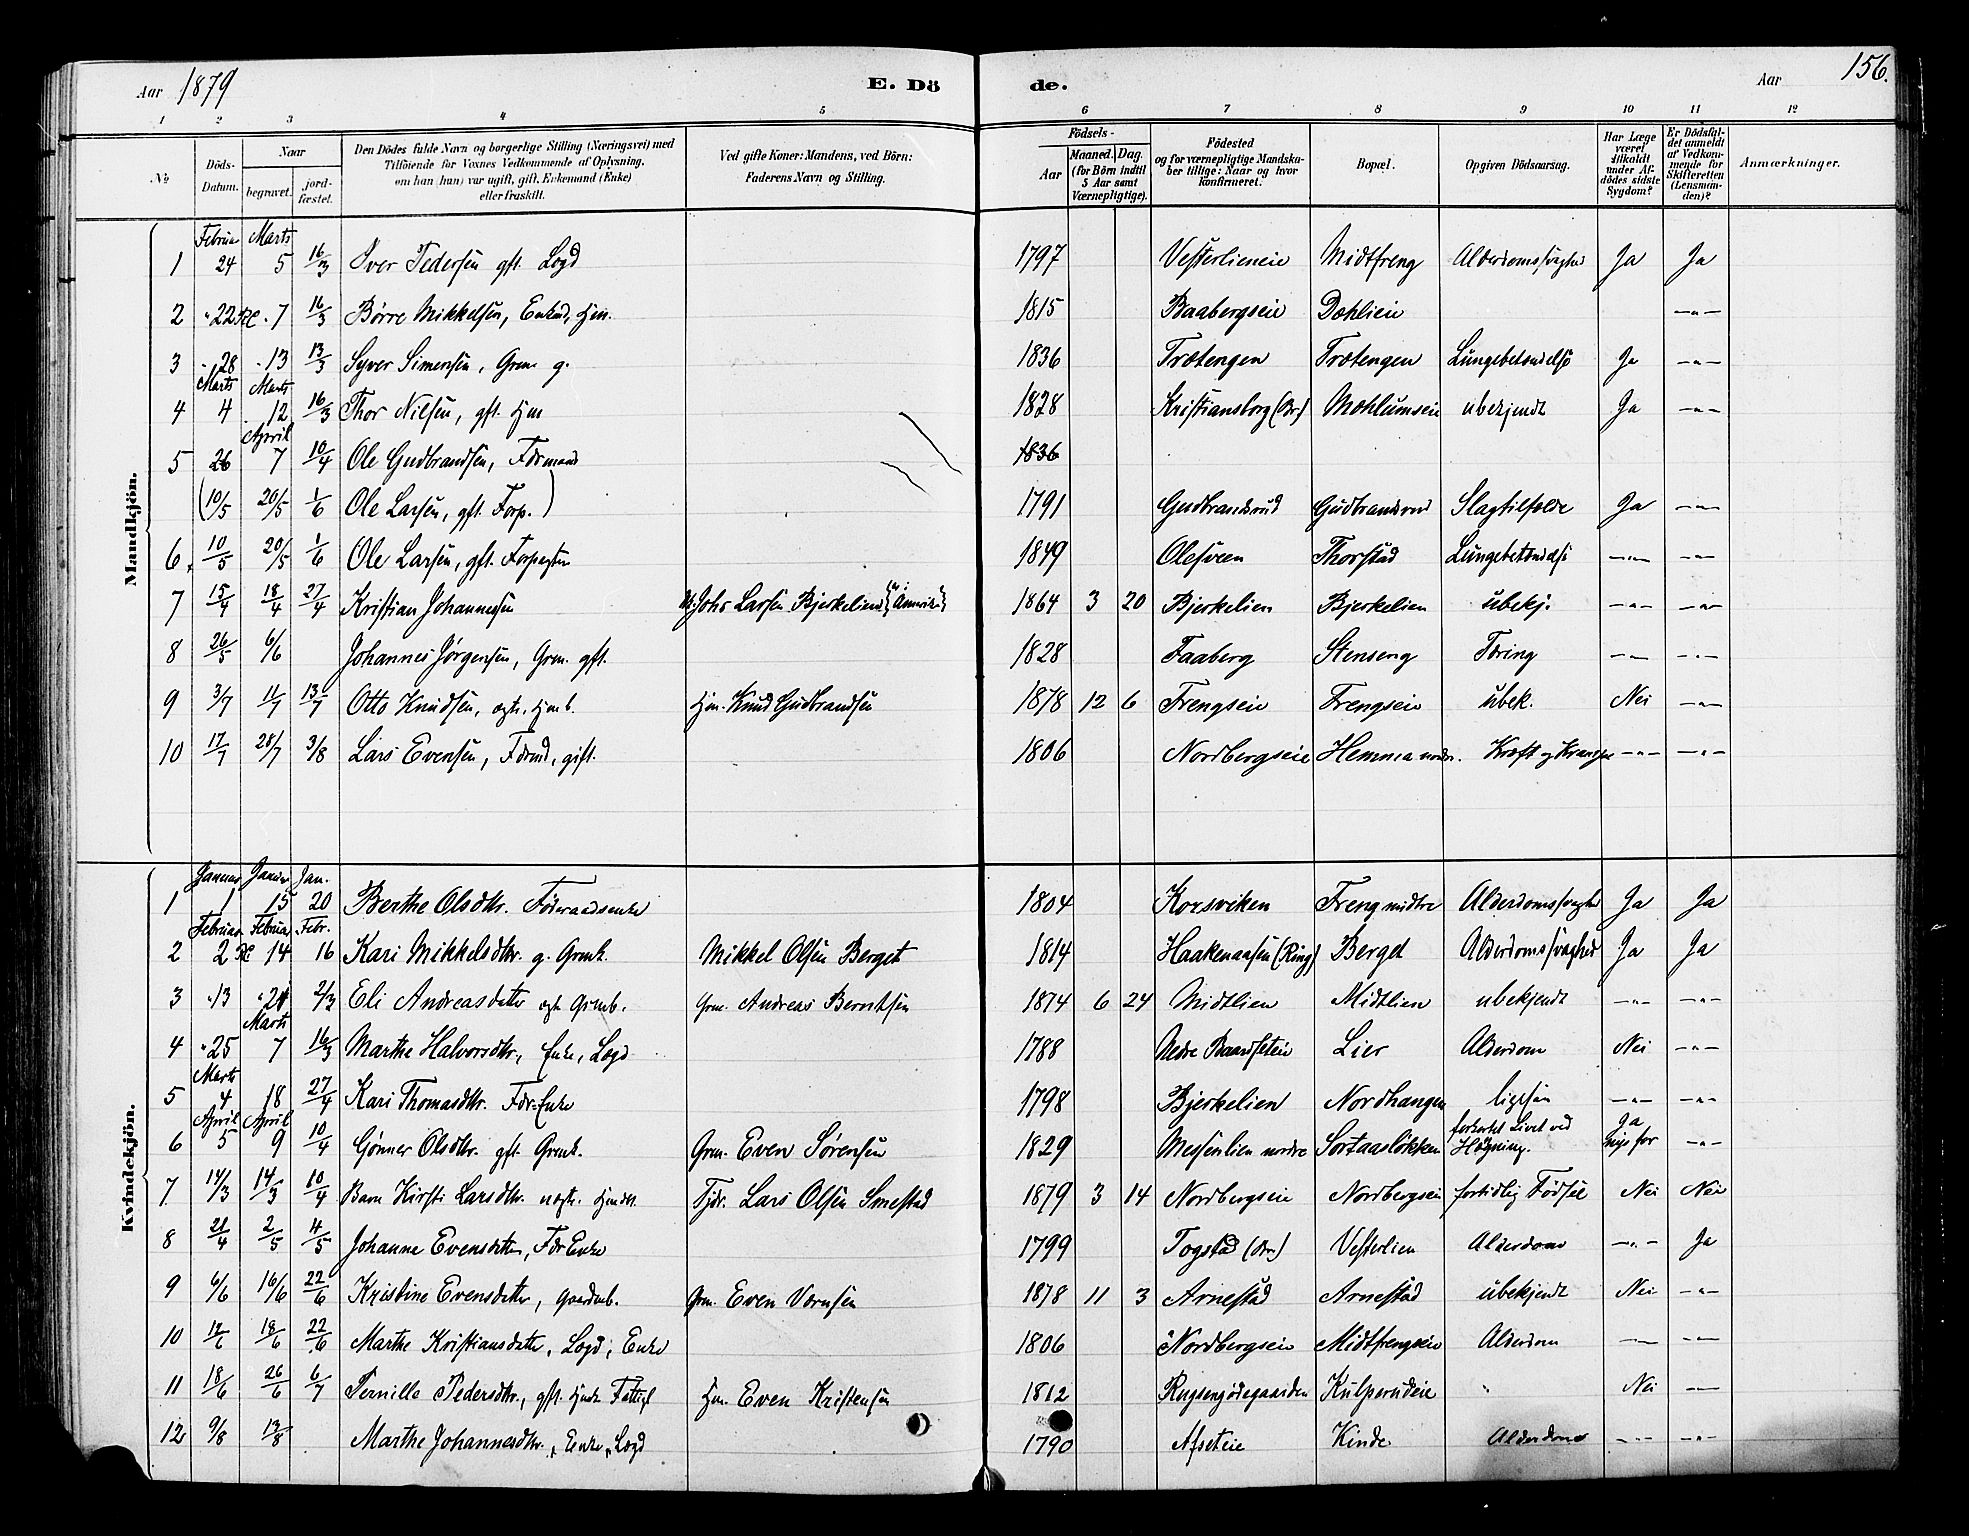 Aar 1879 E. Dö de. Aar 156.
1 2 3 4 5 6 7 8 9 10 11 12
No Döds-Datum. Naar begravet. jord-fæstet. Den Dödes fulde Navn og borgerlige Stilling (Næringsvei) med Tilföiende for Voxnes Vedkommende af Oplysning, om han (hun) var ugift, gift, Enkemand (Enke) eller fraskilt. Ved gifte Koner: Mandens, ved Börn: Faderens Navn og Stilling. Födsels- Aar Maaned. Dag. (for Börn indtil 5 Aar samt Værnepligtige). Födested og for værnepligtige Mandska-ber tillige: Naar og hvor konfirmeret. Bopæl. Opgiven Dödsaarsag. Har Læge været tilkaldt under Af-dödes sidste Sygdom? Er Dödsfal-det anmeldt af Vedkom-mende for Skifteretten (Lensman-den)? Anmærkninger.
Mandkjön.
Februar Marts
1 24 5 16/3 Iver Pedersen gft. Lægd 1797 Vesterlieneie Midtfreng Alderdomssvaghed Ja Ja
2 " 22 " 7 16/3 Børre Mikkelsen, Enkmd, Hjm. 1815 Baabergseie Dæhlieie —"—
3 " 28 " 13 13/3 Syver Simensen, Grm. g. 1836 Trætengen Trætengen Lungebetændelse Ja —"—
Marts Marts
4 4 12 16/3 Thor Nielsen, gft. Hjm 1828 Kristiansborg (Br.) Mæhlumseie ubekjendt Ja —"—
April
5 26 7 10/4 Ole Gudbrandsen, Førmand 1836
(10/5 20/5 1/6 Ole Larsen, gft. Forp.) 1791 Gudbrandsrud Gudbrandsrud Slagtilfælde Ja —"—
6. 10/5 20/5 1/6 Ole Larsen, gft. Forpagter 1849 Olesveen Thorstad Lungebetændelse —"— —"—
7 15/4 18/4 27/4 Kristian Johannessen Johs Larsen Bjerkelien (i Amerika) 1864 3 20 Bjerkelien Bjerkelien ubekj. —"— —"—
8 26/5 6/6 Johannes Jørgensen, Grm. gft. 1828 Faaberg Stenseng Tæring —"— —"—
9 3/7 11/7 13/7 Otto Knudsen, ægte. Hjmb. Hjm. Knud Gudbrandsen 1878 12 6 Frengseie Frengseie ubek. Nei —"—
10 17/7 28/7 3/8 Lars Evensen, Førmd, gift. 1806 Nordbergseie Hemma nordr. Kræft —"— —"—
Kvindekjön.
Januar Januar Jan.
1 1 15 20 Berthe Olsdtr. Føderaadsenke 1804 Korsviken Freng midtre Alderdomssvaghed Ja Ja
Februar Februar Febr.
2 2 14 16 Kari Mikkelsdtr. g. Grmk. Mikkel Olsen Berget 1814 Haakenaasen (Ring) Berget Alderdomssvaghed Ja Ja
3 " 13 " 24 2/3 Eli Andreasdatter ægte Grmb. Grm. Andreas Berntsen 1874 6 24 Midtlien Midtlien ubekjendt —"— —"—
Marts
4 " 25 7 16/3 Marthe Halvorsdtr., Enke, Lægd 1788 Nedre Baardseteie Lier Alderdom Nei —"—
Marts
5 4 18 27/4 Kari Thomasdtr. Før-Enke 1798 Bjerkelien Nordhangen ligesaa —"— —"—
April April
6 5 9 10/4 Gønner Olsdtr. gft. Grmk. Grm. Even Sørensen 1829 Messenlien nordre Sortaasløkken forkortet Livet ved Hægning. Ja —"—
7 14/3 14/3 10/4 Barn Kirsti Larsdtr. uægte. Tjdr. Lars Olsen Smestad 1879 3 14 Nordbergseie Nordbergseie fortidlig Fødsel Nei Nei
8 21/4 2/5 4/5 Johanne Evensdatter, Før Enke 1799 Togstad (Br.) Vesterlien Alderdom —"— Ja
9 6/6 16/6 22/6 Kristine Evensdatter, gaardmb. Grm. Even Vernsen 1878 11 3 Arnestad Arnestad ubekjendt Nei —"—
10 12/6 18/6 22/6 Marthe Kristiansdatter, Lægd, Enke 1806 Nordbergseie Midtfrengseie Alderdom —"— —"—
11 18/6 26/6 6/7 Pernille Pedersdtr., gft. Hjmk. Fattigl. Hjm. Even Kristensen 1812 Rugsengødegaarden Kulperudeie " Nei —"—
12 9/8 13/8 Marthe Johannesdtr., Enke, Lægd 1790 Afseteie Kinde Alderdom —"— —"—